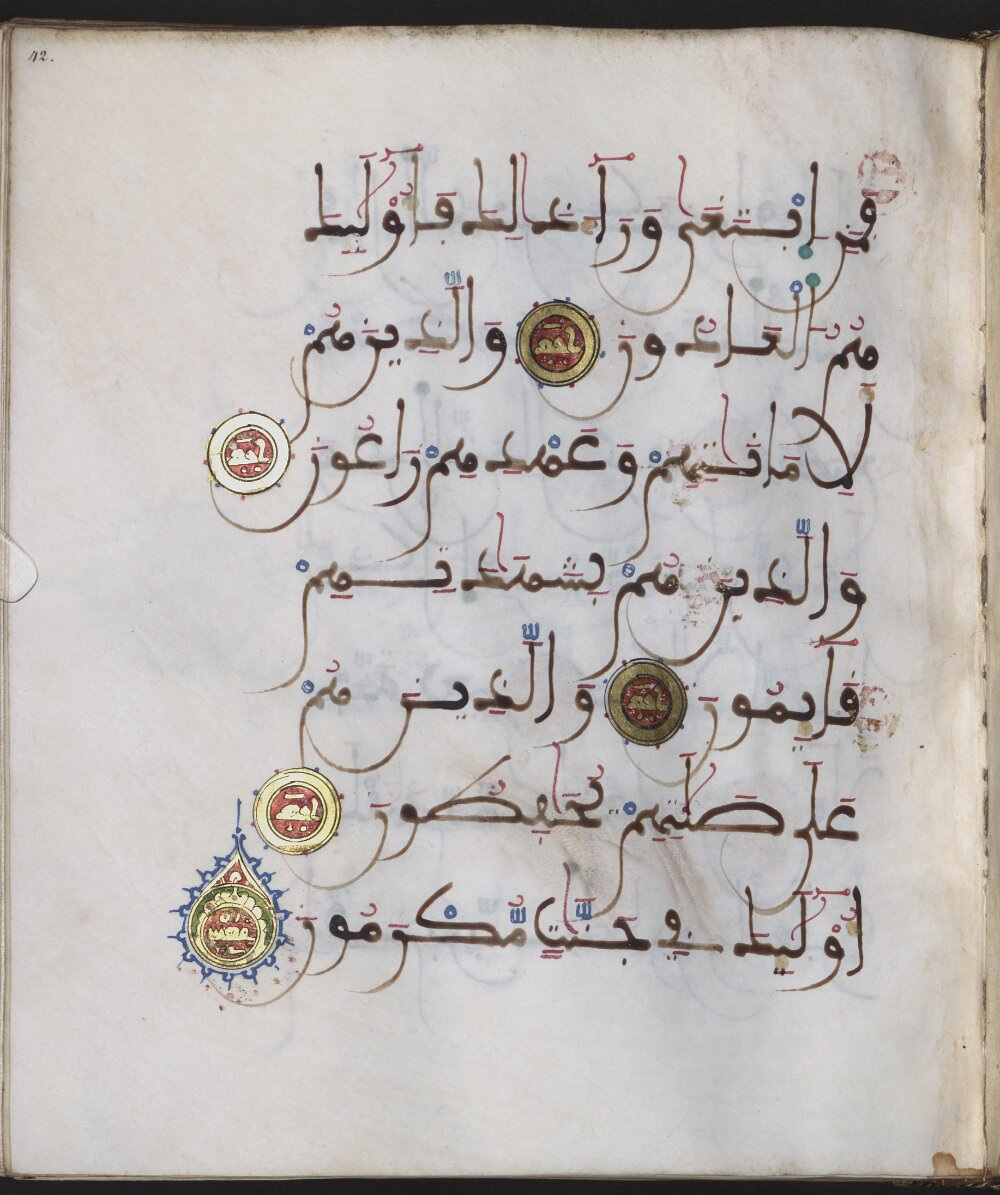 42.
فمن ابتغى وراء ذلك فأولئك
هم العادون والذين هم
لأمانتهم وعهدهم راعون
والذين هم بشهادتهم
قائمون والذين هم
على صلاتهم يحافظون
أولئك في جنات مكرمون